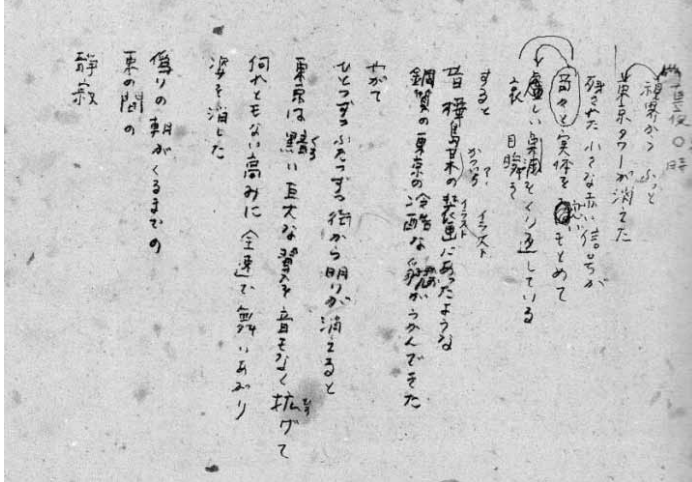 真夜0時
視界から ふっと
東京タワーが消えた
残された小さな赤い信号が
高々と実体を もとめて
虚しい点滅をくり返している
哀 目瞬を
すると
昔 樺島勝一の装画にあったような
かついち アー イラスト イラスト
鋼質の東京の冷酷な貌がうかんできた
やがて
ひとつずつふたつずつ街から明りが消えると
東京は黯い巨大な翼を音もなく拡げて
くろ ひろ
何れともない高みに全速で舞いあがり
姿を消した
偽りの朝がくるまでの
束の間の
静寂